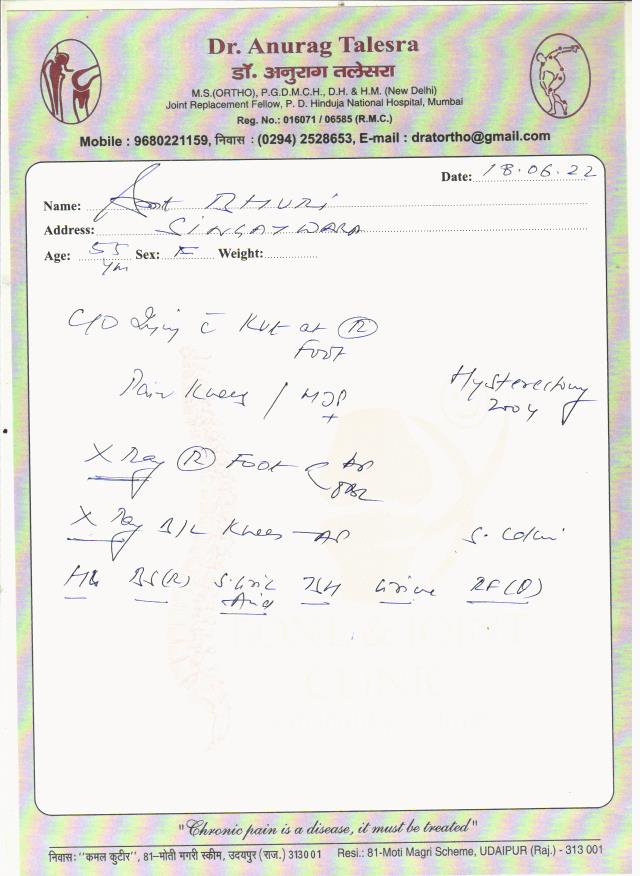 Dr. Anurag Talesra
डॉ. अनुराग तलेसरा
M.S.(ORTHO), P.G.D.M.C.H., D.H. & H.M. (New Delhi)
Joint Replacement Fellow, P. D. Hinduja National Hospital, Mumbai
Reg. No.: 016071 / 06585 (R.M.C.)
Mobile : 9680221159, निवास : (0294) 2528653, E-mail : dratortho@gmail.com
Date: 18.06.22
Name: BHURI
Address:
Age: 55 Sex: F Weight:
yrs
C/O at R
Foot
Pain Knees / Hysterectomy
2004
X Ray R Foot AP
X Ray B/L Knees - AP
Hb BS(R) S. Uric TSH Urine RF(Q)
Acid
CLINIC
"Chronic pain is a disease, it must be treated"
निवास: "कमल कुटीर", 81-मोती मगरी स्कीम, उदयपुर (राज.) 313001 Resi.: 81-Moti Magri Scheme, UDAIPUR (Raj.) - 313 001